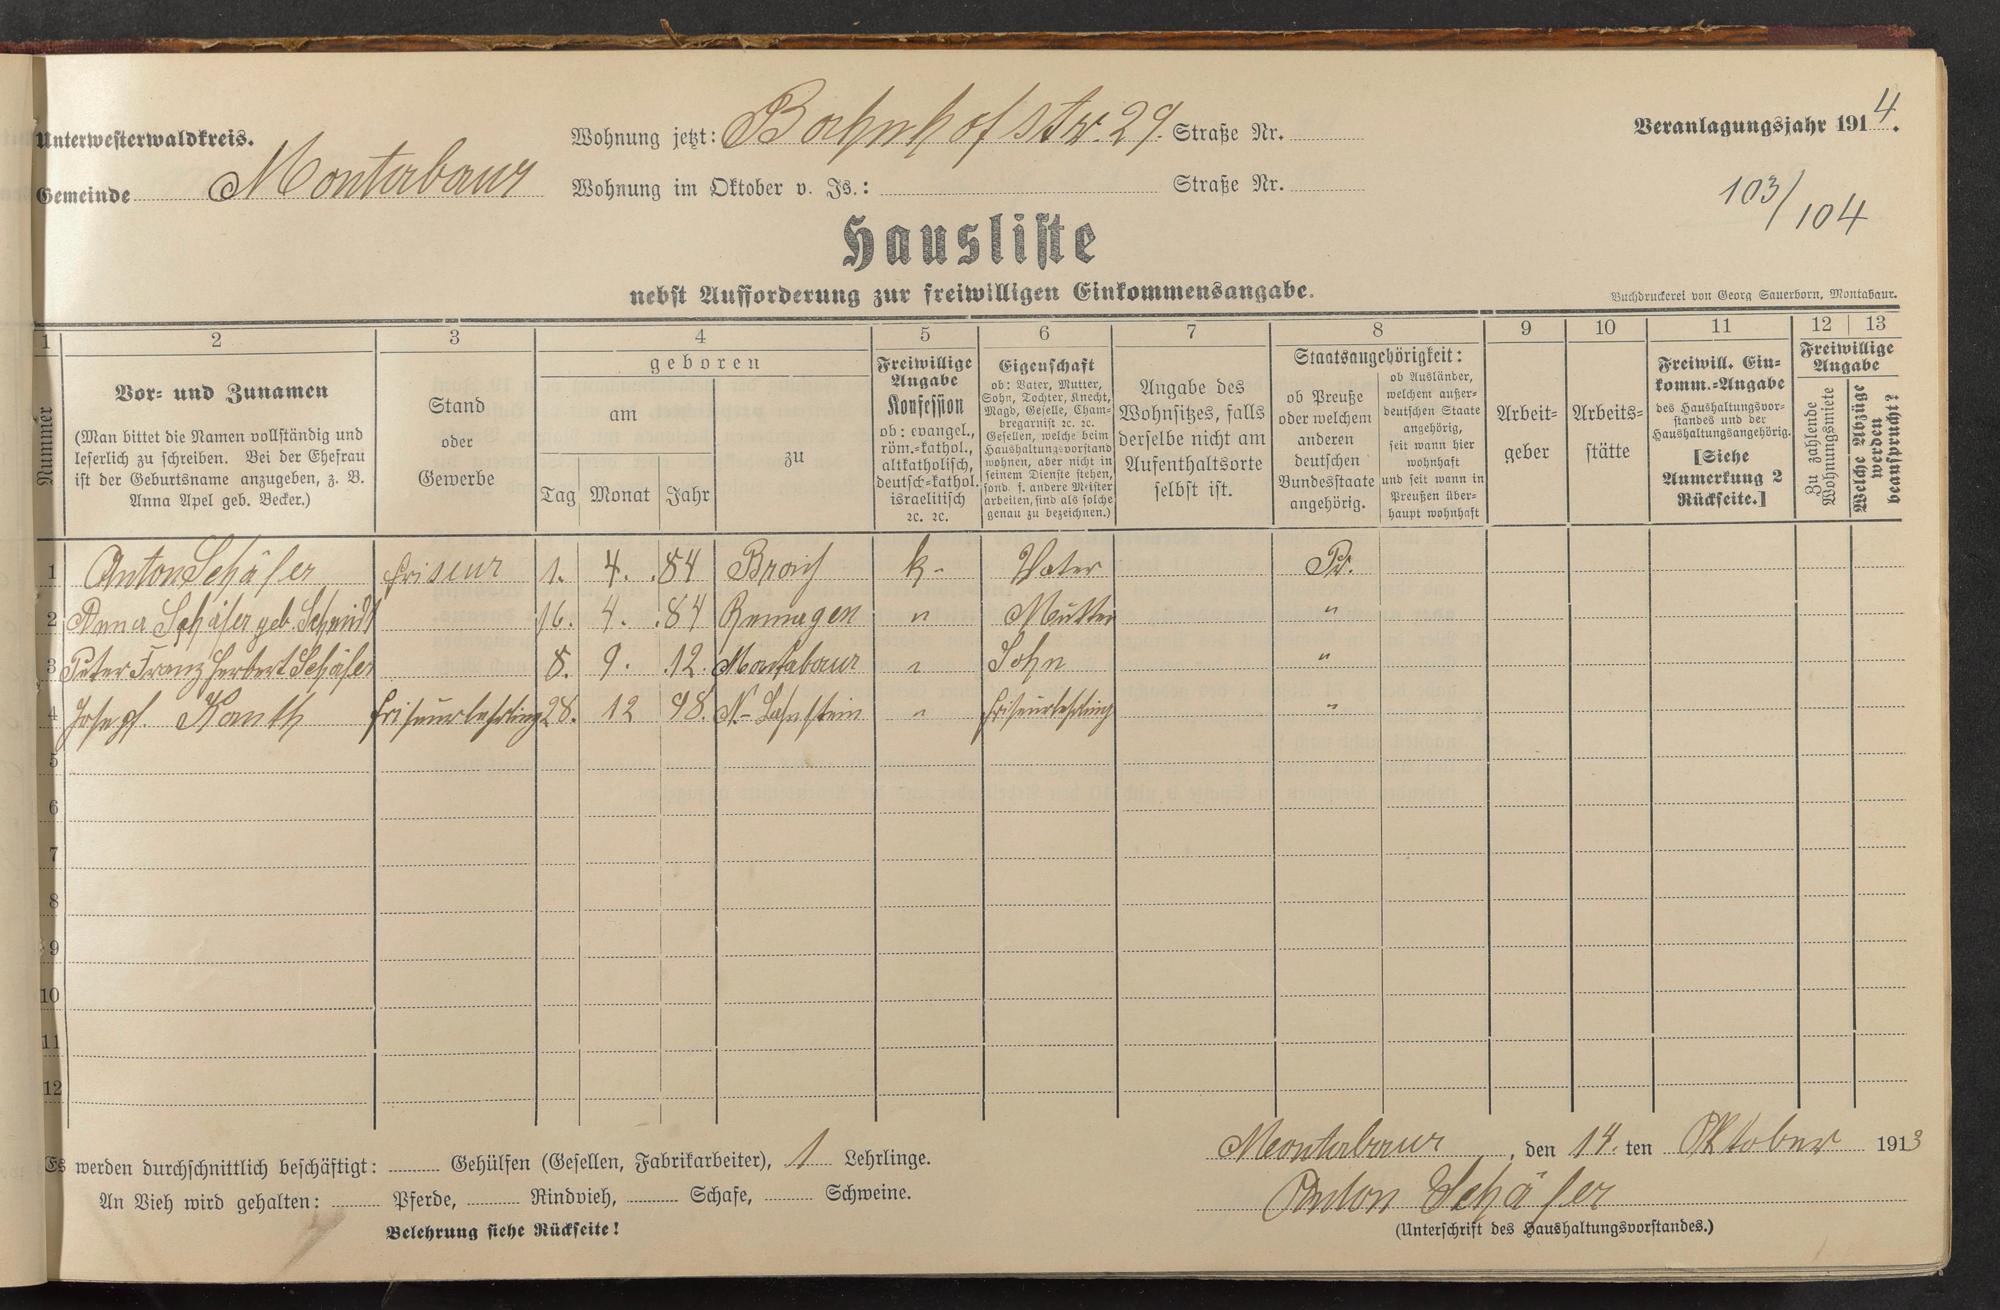 Unterwesterwaldkreis.
Wohnung jetzt: Bahnhofstr. 29. Straße Nr.
Veranlagungsjahr 1914.
Gemeinde Montabaur
Wohnung im Oktober v. Js.: Straße Nr.
103/104
Hausliste
nebst Aufforderung zur freiwilligen Einkommensangabe.
Buchdruckerei von Georg Sauerborn, Montabaur.
1 2 3 4 5 6 7 8 9 10 11 12 13
Nummer
Vor- und Zunamen
(Man bittet die Namen vollständig und
leserlich zu schreiben. Bei der Ehefrau
ist der Geburtsname anzugeben, z. B.
Anna Apel geb. Becker.)
Stand
oder
Gewerbe
geboren
am
Tag Monat Jahr
zu
Freiwillige
Angabe
Konfession
ob: evangel.,
röm.-kathol.,
altkatholisch,
deutsch-kathol.
israelitisch
ꝛc. ꝛc.
Eigenschaft
ob: Vater, Mutter,
Sohn, Tochter, Knecht,
Magd, Geselle, Cham-
bregarnist ꝛc. ꝛc.
Gesellen, welche beim
Haushaltungsvorstand
wohnen, aber nicht in
seinem Dienste stehen,
sond. f. andere Meister
arbeiten, sind als solche
genau zu bezeichnen.)
Angabe des
Wohnsitzes, falls
derselbe nicht am
Aufenthaltsorte
selbst ist.
Staatsangehörigkeit:
ob Preuße
oder welchem
anderen
deutschen
Bundesstaate
angehörig.
ob Ausländer,
welchem außer-
deutschen Staate
angehörig,
seit wann hier
wohnhaft
und seit wann in
Preußen über-
haupt wohnhaft
Arbeit-
geber
Arbeits-
stätte
Freiwill. Ein-
komm.-Angabe
des Haushaltungsvor-
standes und der
Haushaltungsangehörig.
[Siehe
Anmerkung 2
Rückseite.]
Freiwillige
Angabe
Zu zahlende
Wohnungsmiete
Welche Abzüge
werden
beansprucht?
1 Anton Schäfer friseur 1. 4. .84 Broich k. Vater Pr.
2 Anna Schäfer geb. Schmidt 16. 4. .84 Remagen " Mutter "
3 Peter Franz Herbert Schäfer 8. 9. .12. Montabaur " Sohn "
4 Josepf. Kanth friseurlehrling 28. 12 98. N-Lahnstein " friseurlehrling "
5
6
7
8
9
10
11
12
Es werden durchschnittlich beschäftigt: Gehülfen (Gesellen, Fabrikarbeiter), 1 Lehrlinge.
Montabaur, den 14. ten Oktober 1913
An Vieh wird gehalten: Pferde, Rindvieh, Schafe, Schweine.
Anton Schäfer
Belehrung siehe Rückseite!
(Unterschrift des Haushaltungsvorstandes.)